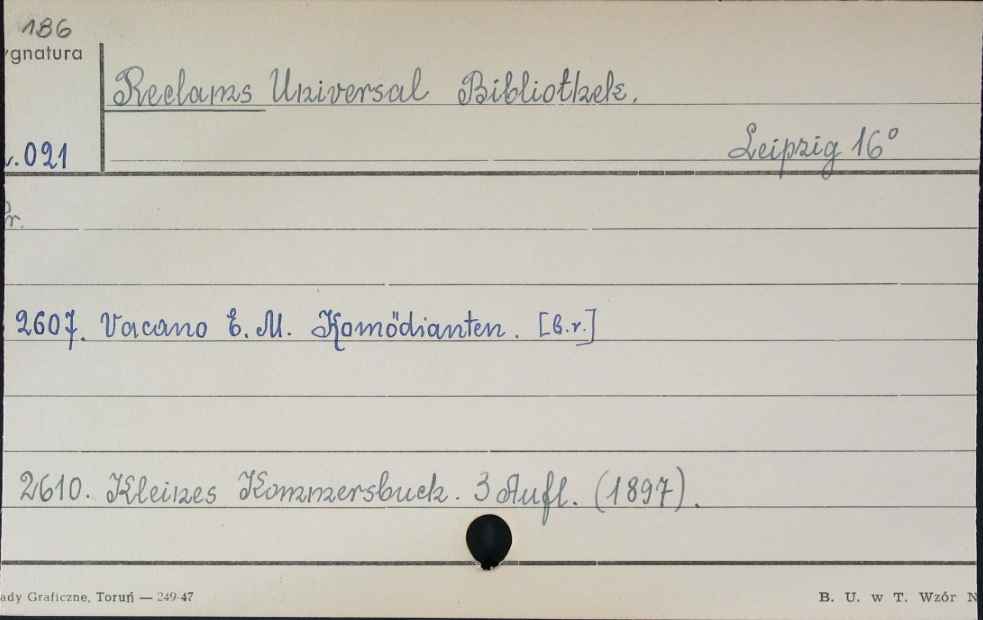 186
ygnatura
Reclams Universal Bibliothek.
v.021
Leipzig 16°
r.
2607. Vacano E. M. Komödianten. [B.r.]
2610. Kleines Kommersbuch. 3 Aufl. (1897).
ady Graficzne, Toruń — 249-47
B. U. w T. Wzór N